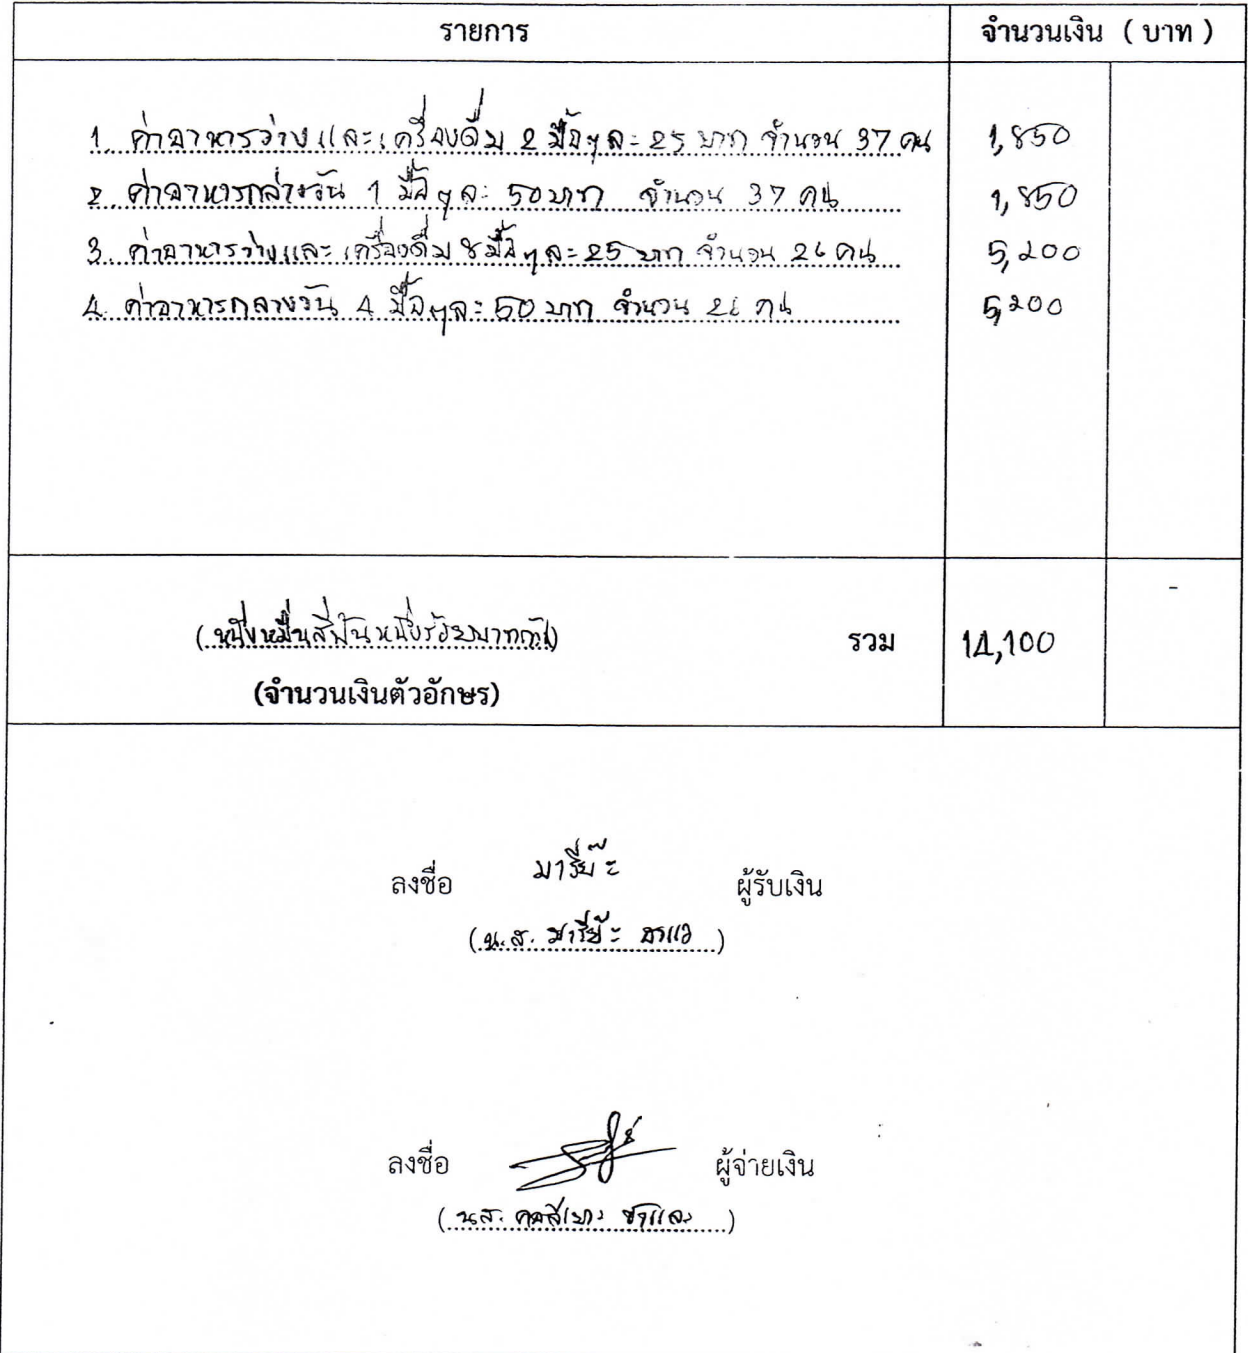 รายการ จำนวนเงิน ( บาท )
1. ค่าอาหารว่างและเครื่องดื่ม 2 มื้อๆละ 25 บาท จำนวน 37 คน 1,850
2. ค่าอาหารกลางวัน 1 มื้อๆละ 50 บาท จำนวน 37 คน 1,850
3. ค่าอาหารว่างและเครื่องดื่ม 8 มื้อๆละ 25 บาท จำนวน 26 คน 5,200
4. ค่าอาหารกลางวัน 4 มื้อๆละ 50 บาท จำนวน 26 คน 5,200
-
(หนึ่งหมื่นสี่พันหนึ่งร้อยบาทถ้วน) รวม 14,100
(จำนวนเงินตัวอักษร)
ลงชื่อ มารีย๊ะ ผู้รับเงิน
(น.ส. มารีย๊ะ)
ลงชื่อ ผู้จ่ายเงิน
(นส.)